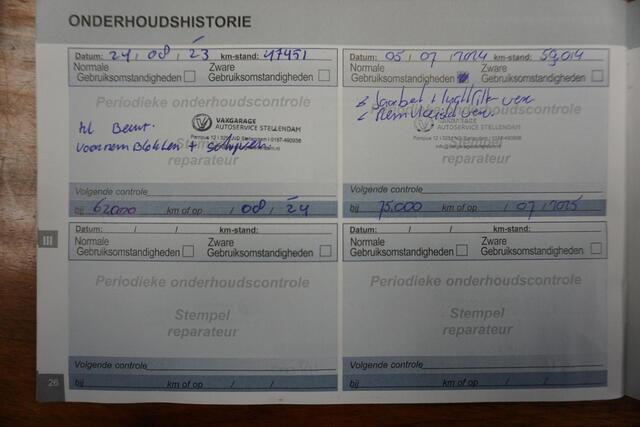 ONDERHOUDSHISTORIE
Datum: 24 / 08 / 23 km-stand: 47451
Normale Gebruiksomstandigheden
Zware Gebruiksomstandigheden
Periodieke onderhoudscontrole
VAKGARAGE
AUTOSERVICE STELLENDAM
Beurt.
voorrem Blokken +
Stempel
reparateur
Volgende controle
bij 62000 km of op / 08 / 24
Datum: 05 / 07 / 2024 km-stand: 59014
Normale Gebruiksomstandigheden
Zware Gebruiksomstandigheden
Periodieke onderhoudscontrole
+ luchtfilter verv.
Remvloeistof verv.
VAKGARAGE
AUTOSERVICE STELLENDAM
Stempel
reparateur
Volgende controle
bij 75.000 km of op / 07 / 2025
III
Datum: / / km-stand:
Normale Gebruiksomstandigheden
Zware Gebruiksomstandigheden
Periodieke onderhoudscontrole
Stempel
reparateur
Volgende controle
bij km of op / /
Datum: / / km-stand:
Normale Gebruiksomstandigheden
Zware Gebruiksomstandigheden
Periodieke onderhoudscontrole
Stempel
reparateur
Volgende controle
bij km of op / /
26